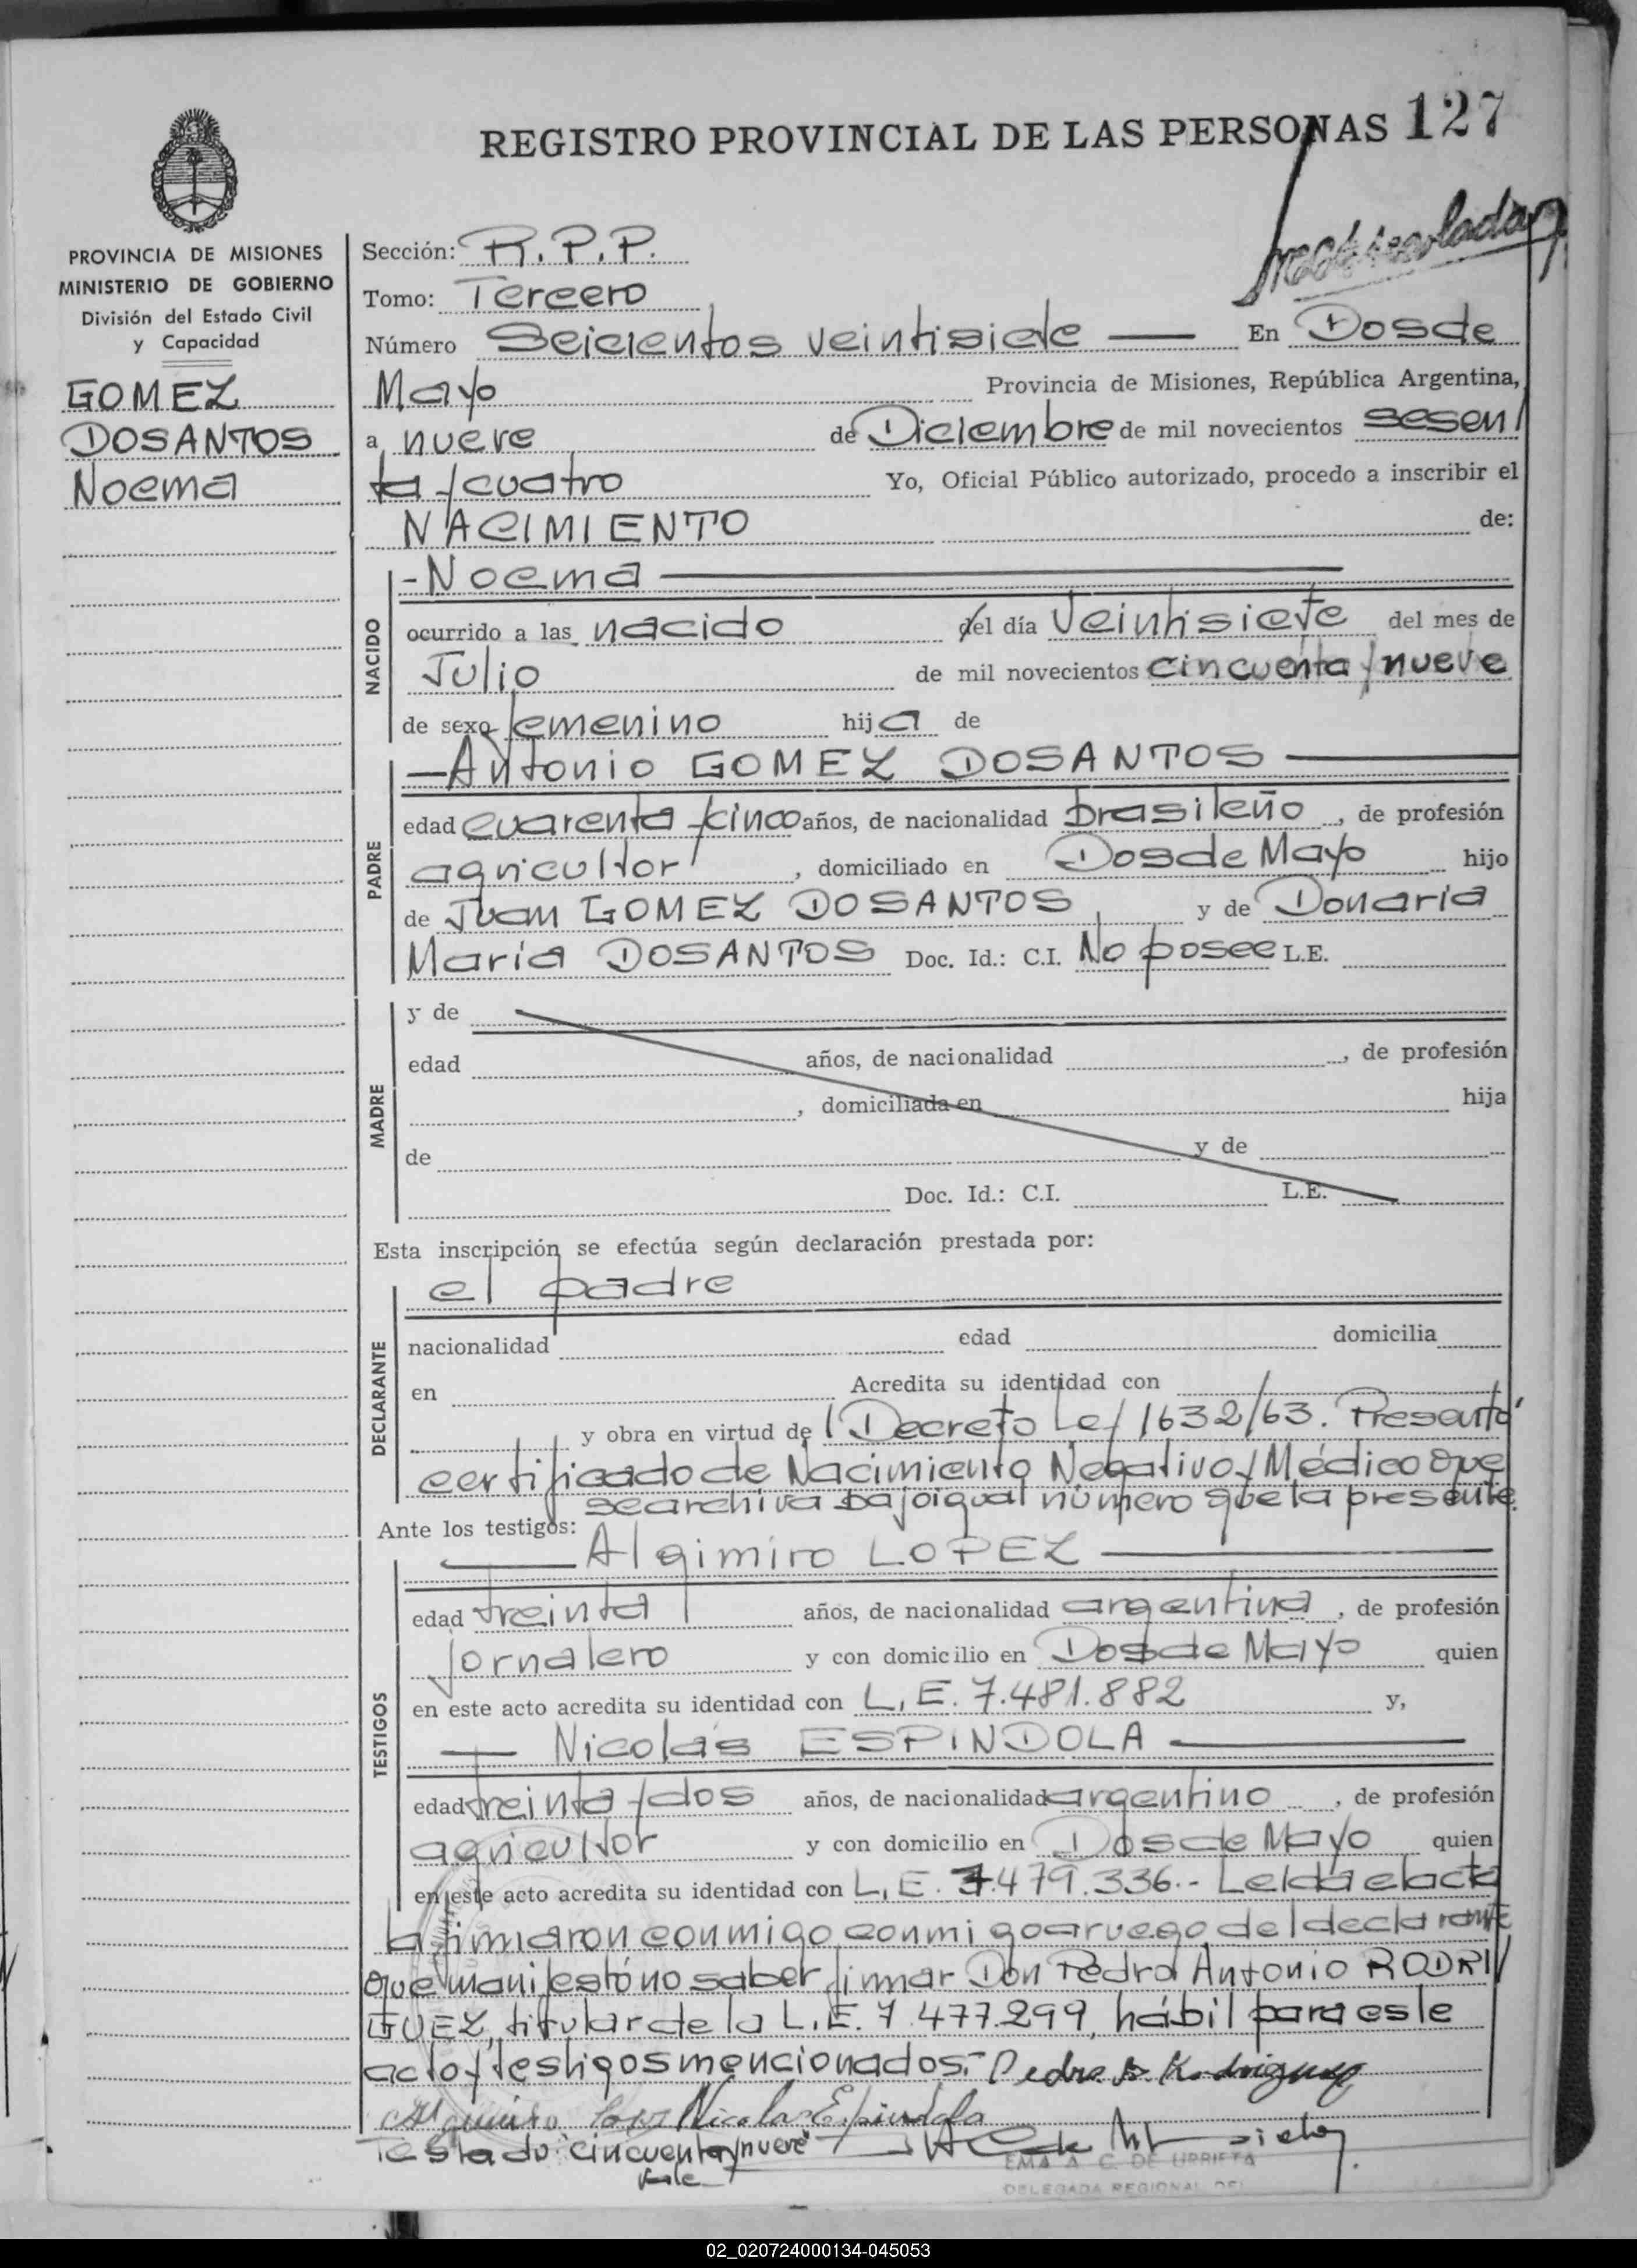 REGISTRO PROVINCIAL DE LAS PERSONAS 127
PROVINCIA DE MISIONES
MINISTERIO DE GOBIERNO
División del Estado Civil
y Capacidad
GOMEZ
DOSANTOS
Noema
Sección: R.P.P.
Tomo: Tercero
Número Seicientos veintisiete — En Dos de
Mayo Provincia de Misiones, República Argentina,
a nueve de Diciembre de mil novecientos sesen/
ta y cuatro Yo, Oficial Público autorizado, procedo a inscribir el
NACIMIENTO de:
NACIDO
- Noema —
ocurrido a las nacido del día Veintisiete del mes de
Julio de mil novecientos cincuenta y nueve
de sexo femenino hija de
PADRE
— Antonio GOMEZ DOSANTOS —
edad cuarenta y cinco años, de nacionalidad brasileño, de profesión
agricultor, domiciliado en Dos de Mayo hijo
de Juan GOMEZ DOSANTOS y de Donaria
María DOSANTOS Doc. Id.: C.I. No posee L.E.
MADRE
y de
edad años, de nacionalidad , de profesión
, domiciliada en hija
de y de
Doc. Id.: C.I. L.E.
Esta inscripción se efectúa según declaración prestada por:
el padre
DECLARANTE
nacionalidad edad domicilia
en Acredita su identidad con
y obra en virtud de l Decreto Ley 1632/63. Presentó
certificado de Nacimiento Negativo y Médico que
se archiva bajo igual número que la presente.
Ante los testigos:
TESTIGOS
— Algimiro LOPEZ —
edad treinta años, de nacionalidad argentina, de profesión
jornalero y con domicilio en Dos de Mayo quien
en este acto acredita su identidad con L.E. 7.481.882 y,
— Nicolás ESPINDOLA —
edad treinta y dos años, de nacionalidad argentino, de profesión
agricultor y con domicilio en Dos de Mayo quien
en este acto acredita su identidad con L.E. 7.479.336.- Leída el acta
la firmaron conmigo conmigo a ruego del declarante
que manifestó no saber firmar Don Pedro Antonio RODRI/
GUEZ, titular de la L.E. 7.477.299, hábil para este
acto y testigos mencionados.- Pedro A. Rodriguez
Nicolas Espindola
Testado "cincuenta y nueve"
Vale
EMA A. C. DE URRIETA
DELEGADA REGIONAL DEL
02_020724000134-045053